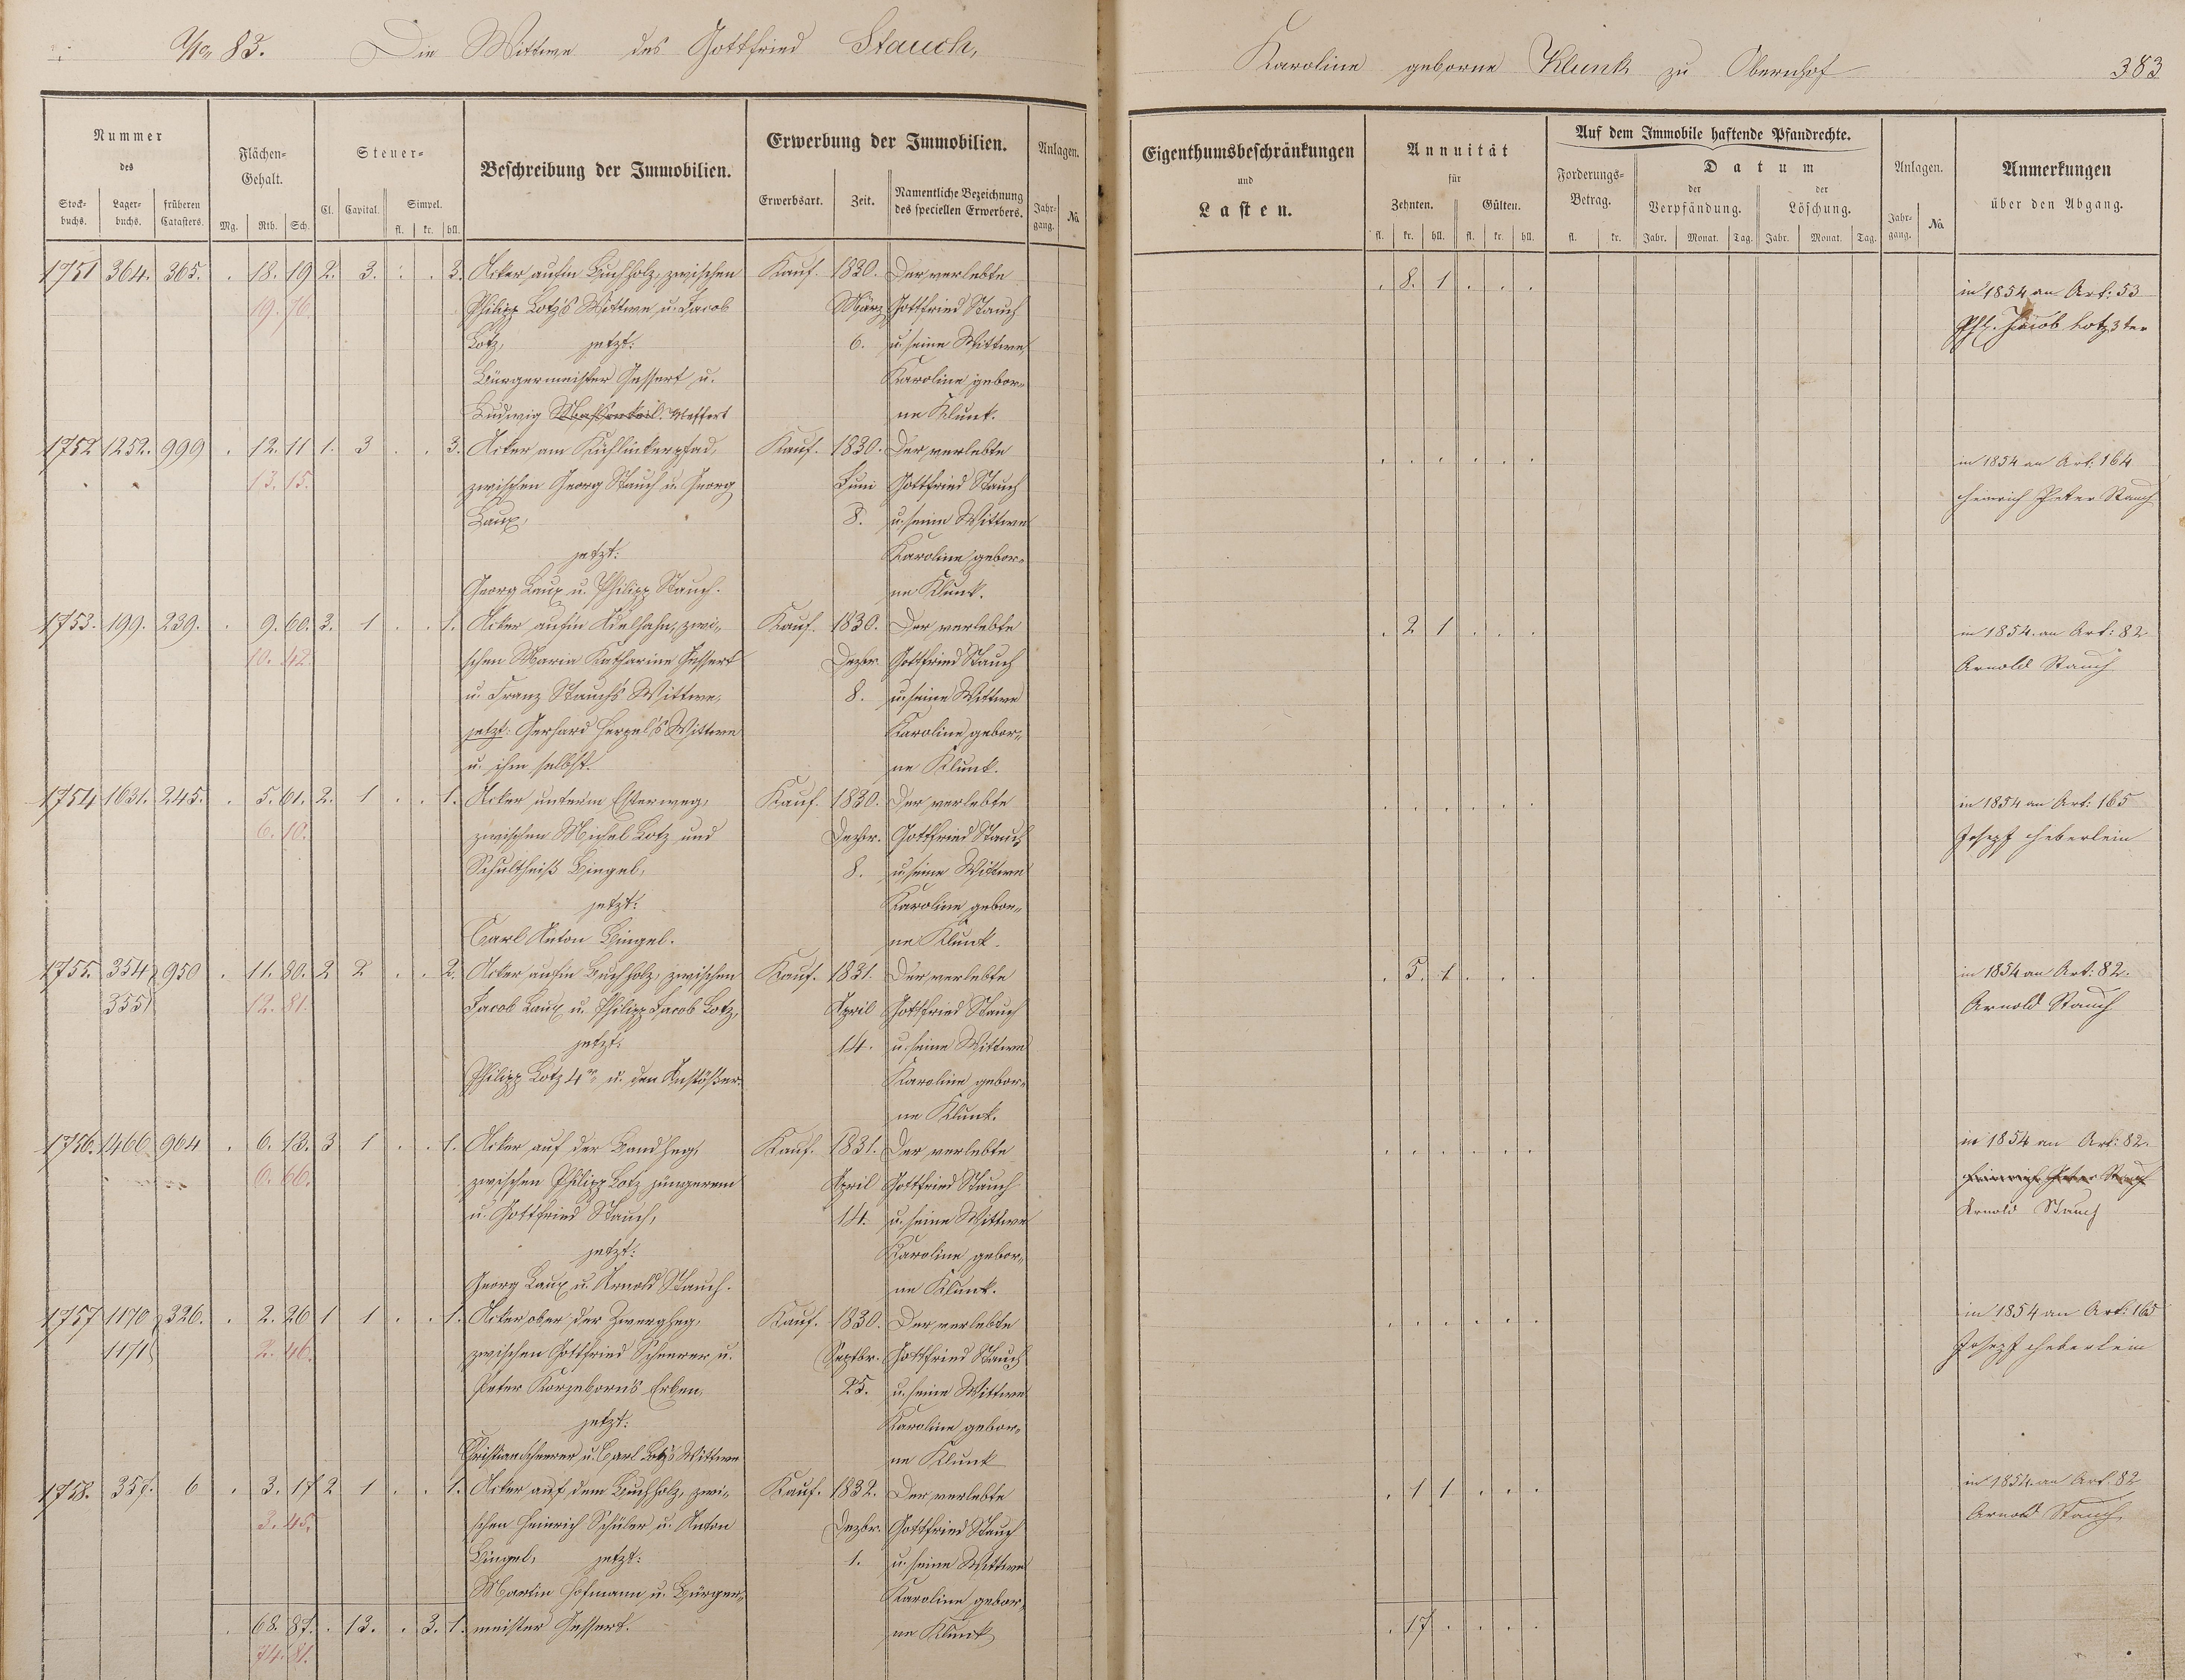 No 83. Die Wittwe des Gottfried Stauch, Karoline geborne Klunk zu Obernhof 383
Nummer des
Stock-buchs. Lager-buchs. früheren Catasters.
Flächen-Gehalt.
Mg. Rth. Sch.
Steuer-
Cl. Capital. Simpel.
fl. kr. hll.
Beschreibung der Immobilien.
Erwerbung der Immobilien.
Erwerbsart. Zeit. Namentliche Bezeichnung des speciellen Erwerbers.
Anlagen.
Jahr-gang. No
Eigenthumsbeschränkungen und Lasten.
Annuität für
Zehnten. Gülten.
fl. kr. hll. fl. kr. hll.
Auf dem Immobile haftende Pfandrechte.
Forderungs-Betrag.
fl. kr.
Datum
der Verpfändung. der Löschung.
Jahr. Monat. Tag. Jahr. Monat. Tag.
Anlagen.
Jahr-gang. No
Anmerkungen über den Abgang.
1751 364. 365. . 18. 19 2. 3. . . 3. Acker aufm Buchholz, zwischen Kauf. 1830. Der verlebte . 8. 1 . . . in 1854 an Art: 53
19. 76. Philipp Lotz's Wittwe u. Jacob März Gottfried Stauch Phl. Jacob Lotz 3ter
Lotz, jetzt: 6. u. seine Wittwe
Bürgermeister Gessert u. Karoline gebor-
Ludwig Massenkeil. Meffert ne Klunk.
1752 1252. 999 . 12. 11 1. 3 . . 3. Acker am Kuhlinkerpfad, Kauf. 1830. Der verlebte . . . . . . in 1854 an Art: 164
13. 15. zwischen Georg Stauch u. Georg Juni Gottfried Stauch Heinrich Peter Stauch
Laux, 8. u. seine Wittwe
jetzt: Karoline gebor-
Georg Laux u. Philipp Stauch. ne Klunk.
1753. 199. 239. . 9. 60. 3. 1 . . 1. Acker aufm Kielhahn, zwi- Kauf. 1830. Der verlebte . 2 1 . . . in 1854 an Art: 82
10. 42. schen Maria Katharine Gessert Dezbr. Gottfried Stauch Arnold Stauch
u. Franz Stauch's Wittwe, 8. u. seine Wittwe
jetzt: Gerhard Herpel's Wittwe Karoline gebor-
u. ihm selbst. ne Klunk.
1754 1631. 245. . 5. 61. 2. 1 . . 1. Acker unterm Esterweg, Kauf. 1830. Der verlebte . . . . . . in 1854 an Art: 165
6. 10. zwischen Michel Lotz und Dezbr. Gottfried Stauch Joseph Heberlein
Schultheiß Bingel, 8. u. seine Wittwe
jetzt: Karoline gebor-
Carl Anton Bingel. ne Klunk.
1755. 354 950 . 11. 80. 2 2 . . 2. Acker aufm Buchholz, zwischen Kauf. 1831. Der verlebte . 5. 1 . . . in 1854 an Art: 82.
355 12. 81. Jacob Laux u. Philipp Jacob Lotz, April Gottfried Stauch Arnold Stauch
jetzt: 14. u. seine Wittwe
Philipp Lotz 4r u. den Anstößer. Karoline gebor-
ne Klunk.
1756. 1466 964 . 6. 13. 3 1 . . 1. Acker auf der Sandheg, Kauf. 1831. Der verlebte . . . . . . in 1854 an Art: 82.
6. 66. zwischen Philipp Lotz jüngerem April Gottfried Stauch Heinrich Peter Stauch
u. Gottfried Stauch, 14. u. seine Wittwe Arnold Stauch
jetzt: Karoline gebor-
Georg Laux u. Arnold Stauch. ne Klunk.
1757 1170 326. . 2. 26 1 1 . . 1. Acker ober der Zwergheg, Kauf. 1830. Der verlebte . . . . . . in 1854 an Art: 165
1171 2. 46. zwischen Gottfried Scheerer u. Septbr. Gottfried Stauch Joseph Heberlein
Peter Korzeborn's Erben, 25. u. seine Wittwe
jetzt: Karoline gebor-
Christian Scheerer u. Carl Lotz's Wittwe ne Klunk
1758. 357. 6 . 3. 17 2 1 . . 1. Acker auf dem Buchholz, zwi- Kauf. 1832. Der verlebte . 1 1 . . . in 1854 an Art. 82
3. 45. schen Heinrich Schüler u. Anton Dezbr. Gottfried Stauch Arnold Stauch
Bingel, jetzt: 1. u. seine Wittwe
Martin Hofmann u. Bürger- Karoline gebor-
. 68. 87. . 13. . 3. 1. meister Gessert. ne Klunk . 17 . . . .
74. 81.